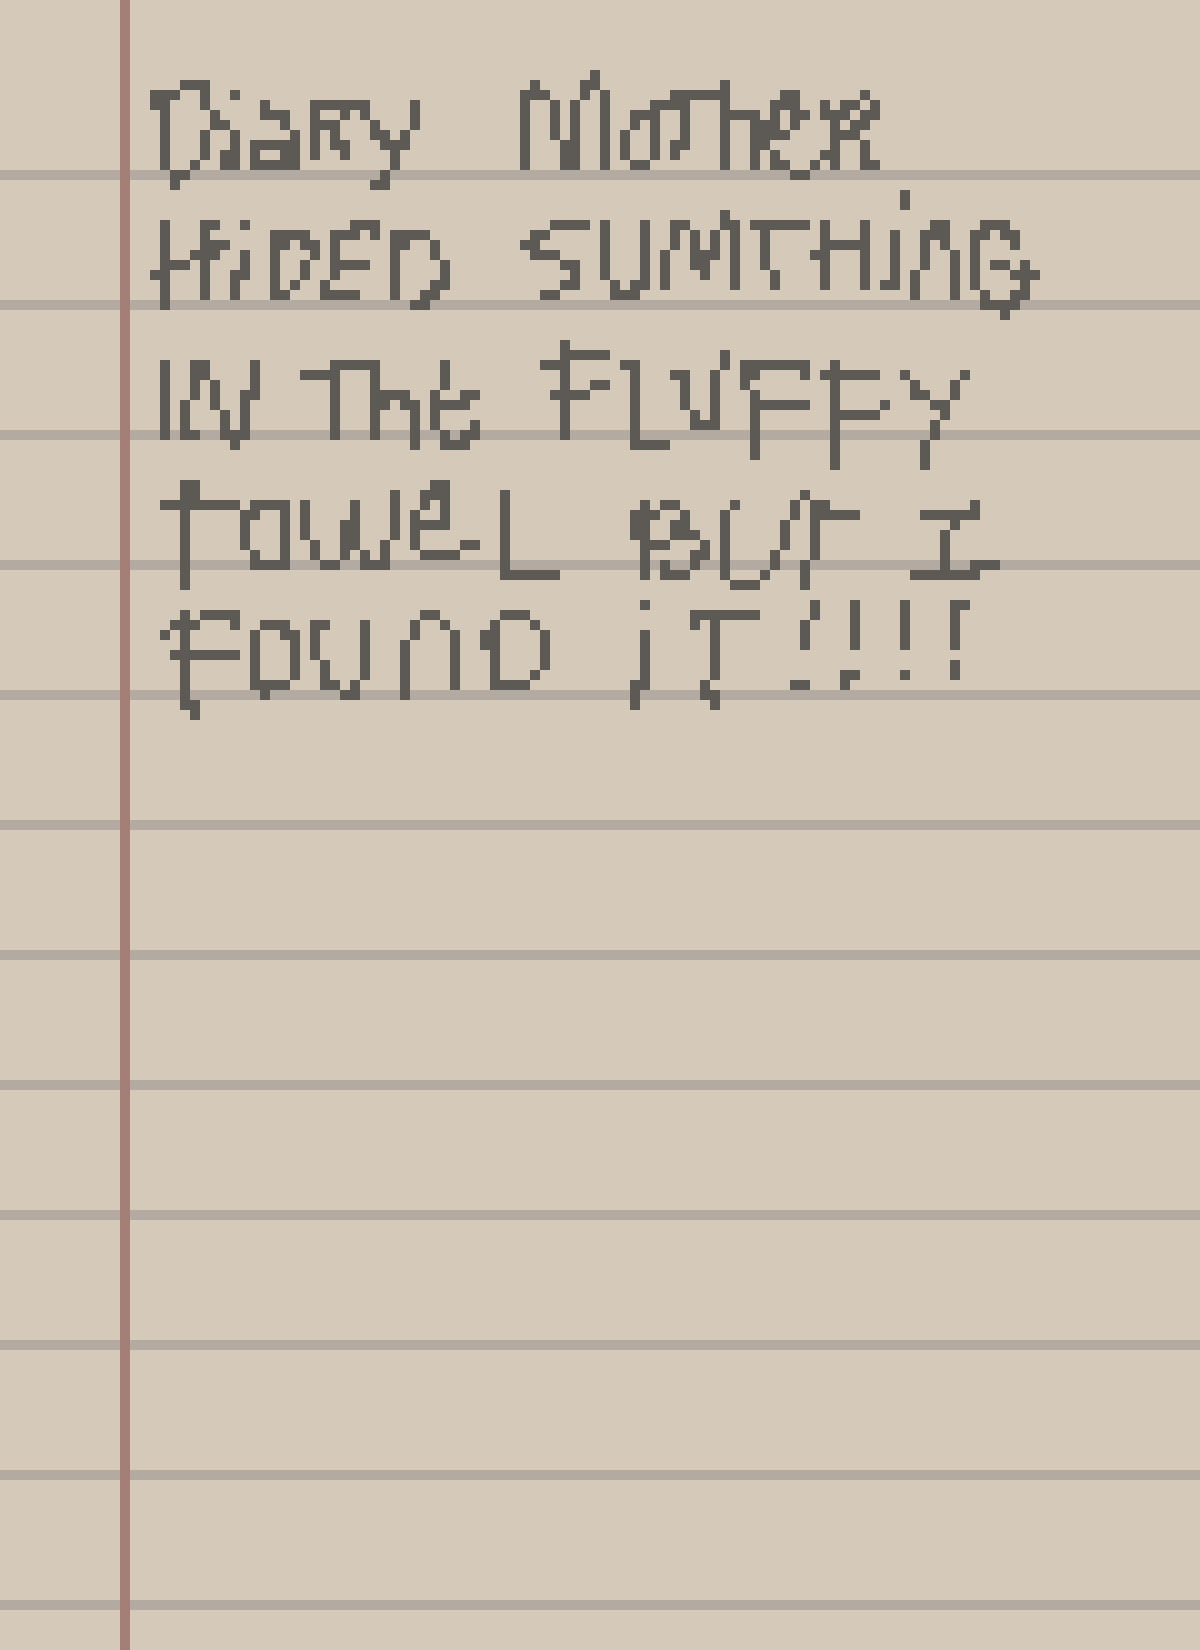 Diary Mother
HiDED SUMTHiNG
IN The FLUFFY
TOWeL BUT I
FOUND iT !!!!